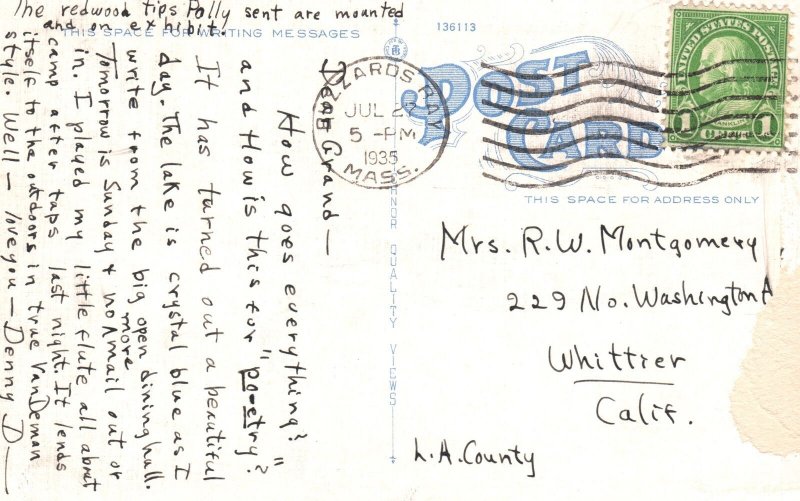 The redwood tips Polly sent are mounted
and on exhibit.
THIS SPACE FOR WRITING MESSAGES
Dear Grand —
How goes everything?
and How is this for "po-etry?"
It has turned out a beautiful
day. The lake is crystal blue as I
write from the big open dining hall.
Tomorrow is Sunday + no more mail out or
in. I played my little flute all about
camp after taps last night. It lends
itself to the outdoors in true VanDeman
style. Well — love you — Denny D —
136113
POST
CARD
BUZZARDS BAY
JUL 2
5 - PM
1935
MASS.
UNITED STATES POSTAGE
FRANKLIN
1 1
THIS SPACE FOR ADDRESS ONLY
QUALITY VIEWS
Mrs. R.W. Montgomery
229 No. Washington A
Whittier
Calif.
L.A. County